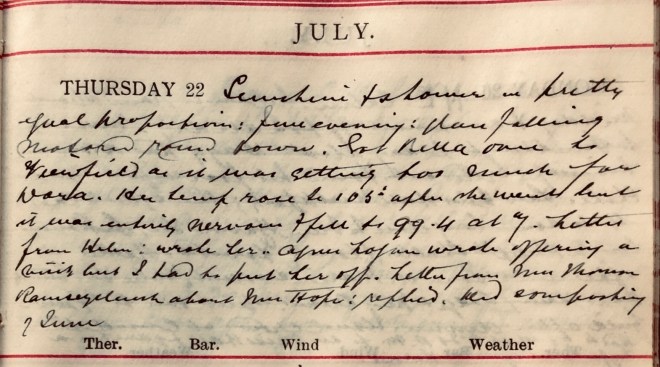 JULY.
THURSDAY 22 Sunshine & shower in pretty
equal proportions: fine evening: glass falling
Motored round town. Got Bella over to
Viewfield as it was getting too much for
Dora. Her temp rose to 103² after she went but
it was entirely nervous & fell to 99.4 at 7. Letter
from Helen: wrote her. Agnes Logan wrote offering a
visit but I had to put her off. Letter from Mrs Thomson
about Mrs Hope: replied. Red
of June
Ther. Bar. Wind Weather